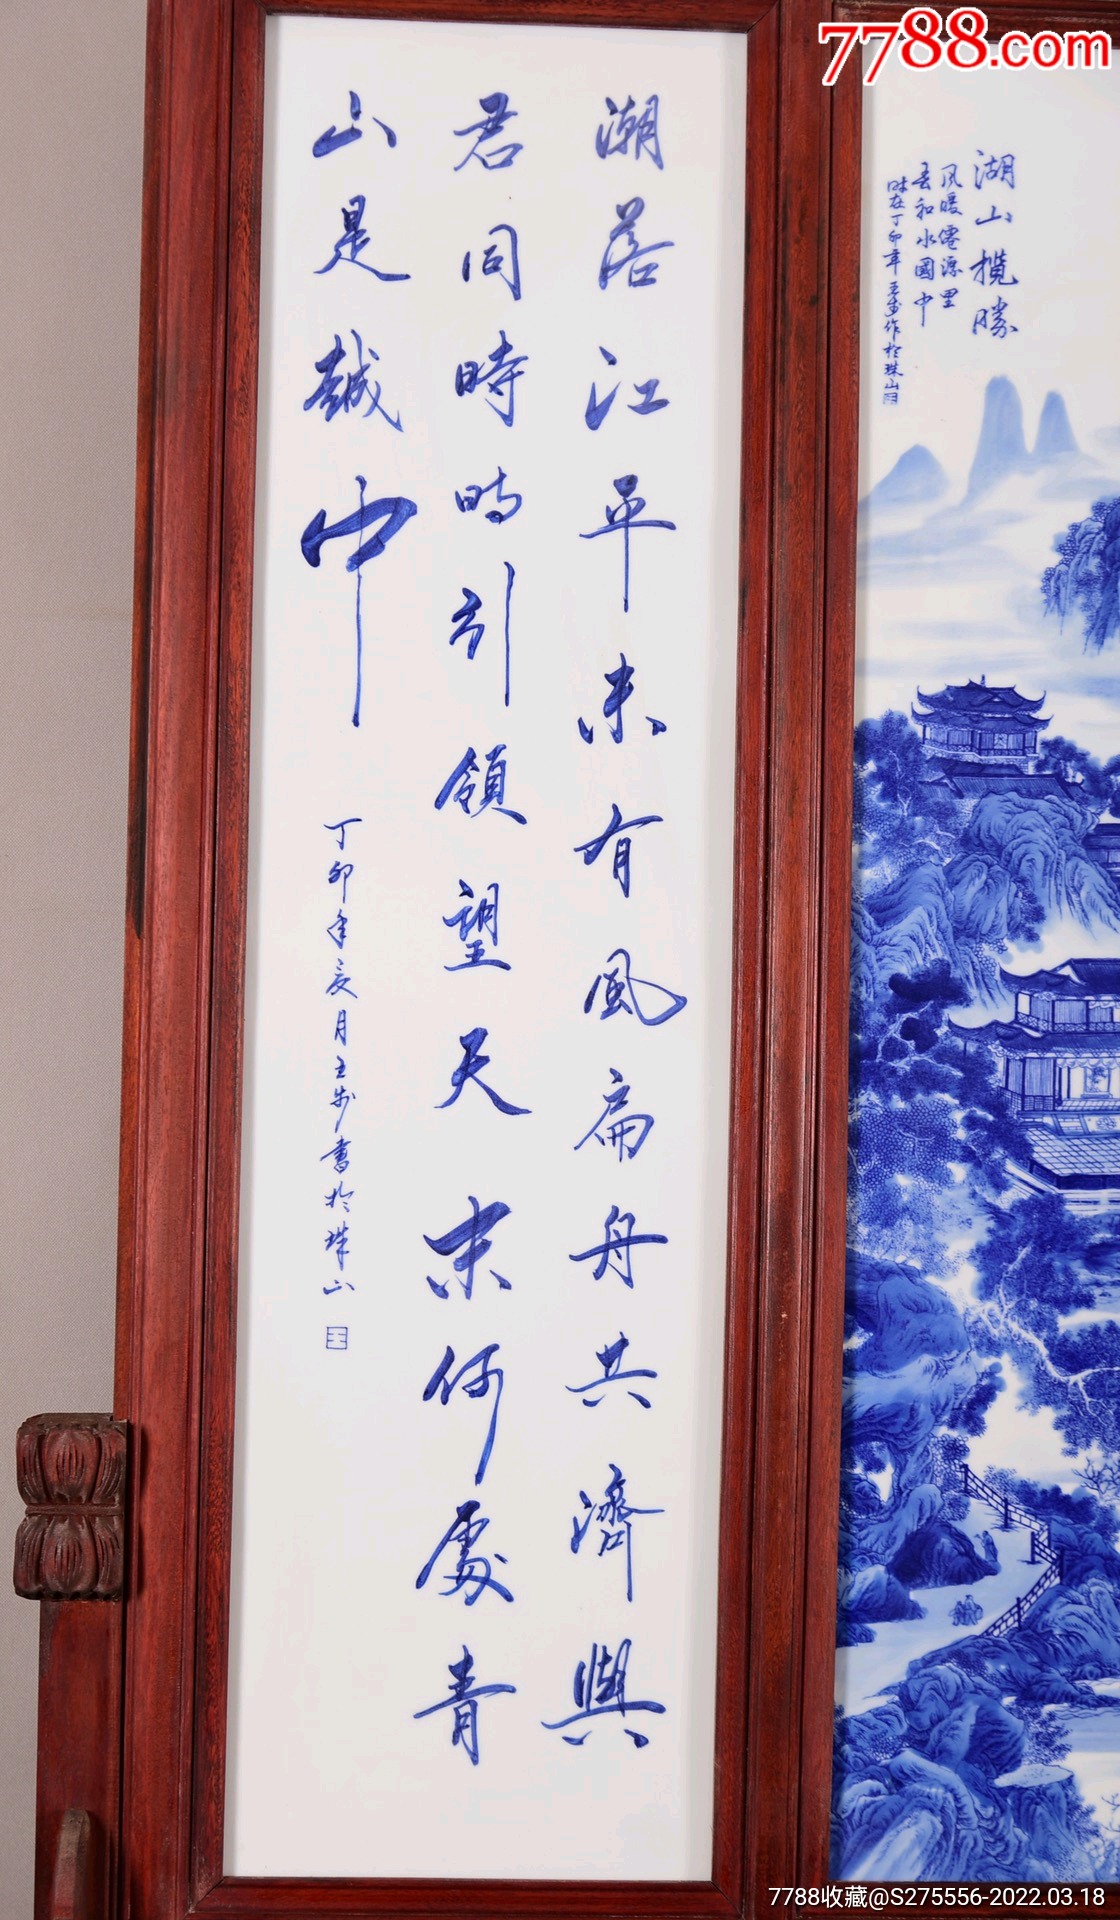 7788.com
湖山揽勝
风暖僊源里
春和水國中
时在丁卯年王步作於珠山
潮落江平未有風扁舟共濟與
君同時时引領望天末何處青
山是越中
丁卯年夏月王步書於珠山
王
7788收藏@S275556-2022.03.18